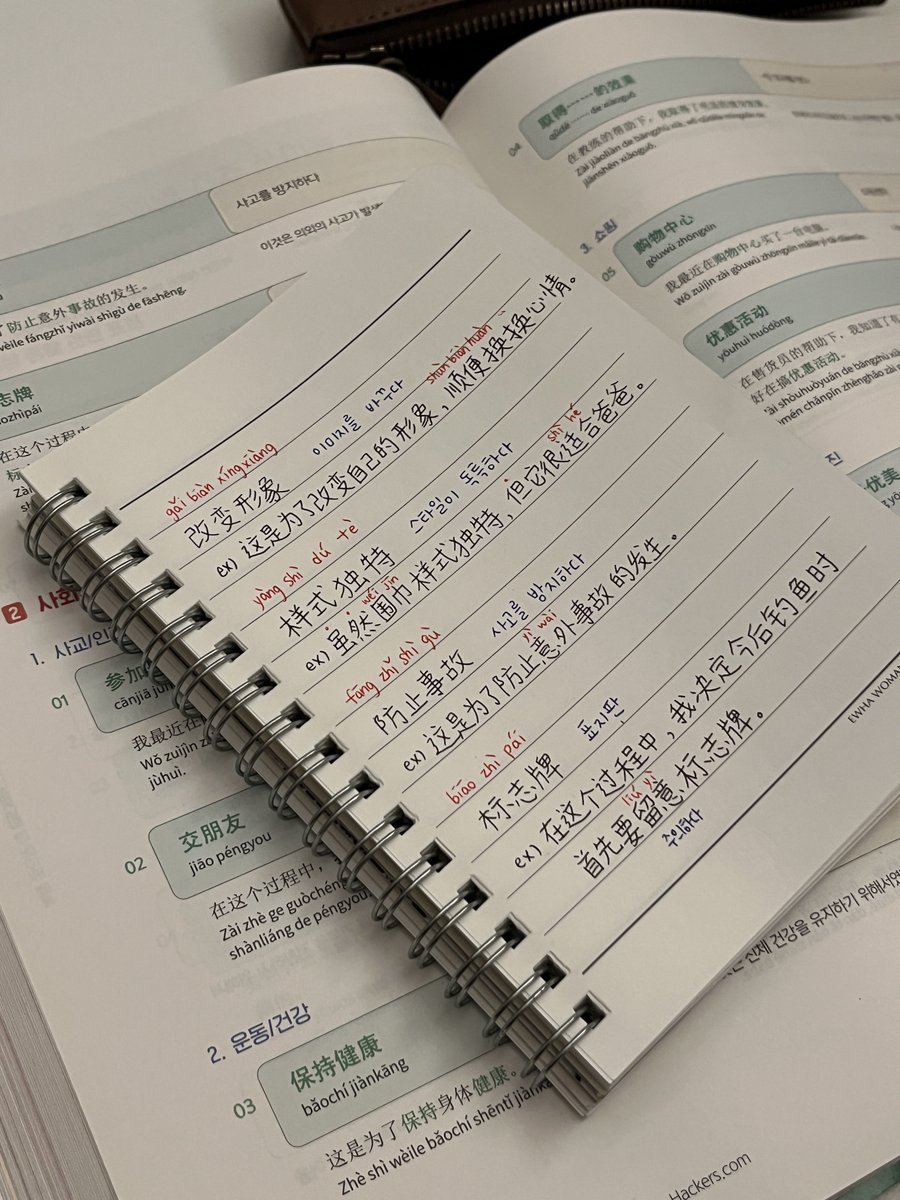 사고를 방지하다
이것은 의외의 사고가
防止意外事故的发生。
wèile fángzhǐ yìwài shìgù de fāshēng.
志牌
zhìpái
在这个过程中
2 사회
1. 사교/인
01
参加
cānjiā jù
我最近在
Wǒ zuìjìn
jùhuì.
02
交朋友
jiāo péngyou
在这个过程中，
Zài zhè ge guòchéng
shànliáng de péngyou
2. 운동/건강
03
保持健康
bǎochí jiànkāng
这是为了保持身体健康。
Zhè shì wèile bǎochí shēntǐ jiànkāng
gǎi biàn xíng xiàng
改变形象 이미지를 바꾸다
shùn biàn huàn
ex) 这是为了改变自己的形象，顺便换换心情。
yàng shì dú tè
样式独特 스타일이 독특하다
wéi jīn shì hé
ex) 虽然围巾样式独特，但它很适合爸爸。
fáng zhǐ shì gù
防止事故 사고를 방지하다
yì wài
ex) 这是为了防止意外事故的发生。
biāo zhì pái
标志牌 표지판
ex) 在这个过程中，我决定今后钓鱼时
liú yì
首先要留意标志牌。
주의하다
EWHA WOMAN
04
取得……的效果
qǔdé …… de xiàoguǒ
在教练的帮助下，我取得了
Zài jiàoliàn de bāngzhù xià, wǒ qǔdé
jiànshēn xiàoguǒ.
3. 쇼핑
05
购物中心
gòuwù zhōngxīn
我最近在购物中心买了一台电脑。
Wǒ zuìjìn zài gòuwù zhōngxīn mǎile yì tái diànnǎo.
优惠活动
yōuhuì huódòng
在售货员的帮助下，我知道了
好在搞优惠活动。
Zài shòuhuòyuán de bāngzhù xià
优美
신체 건강을 유지하기 위해서였
Hackers.com